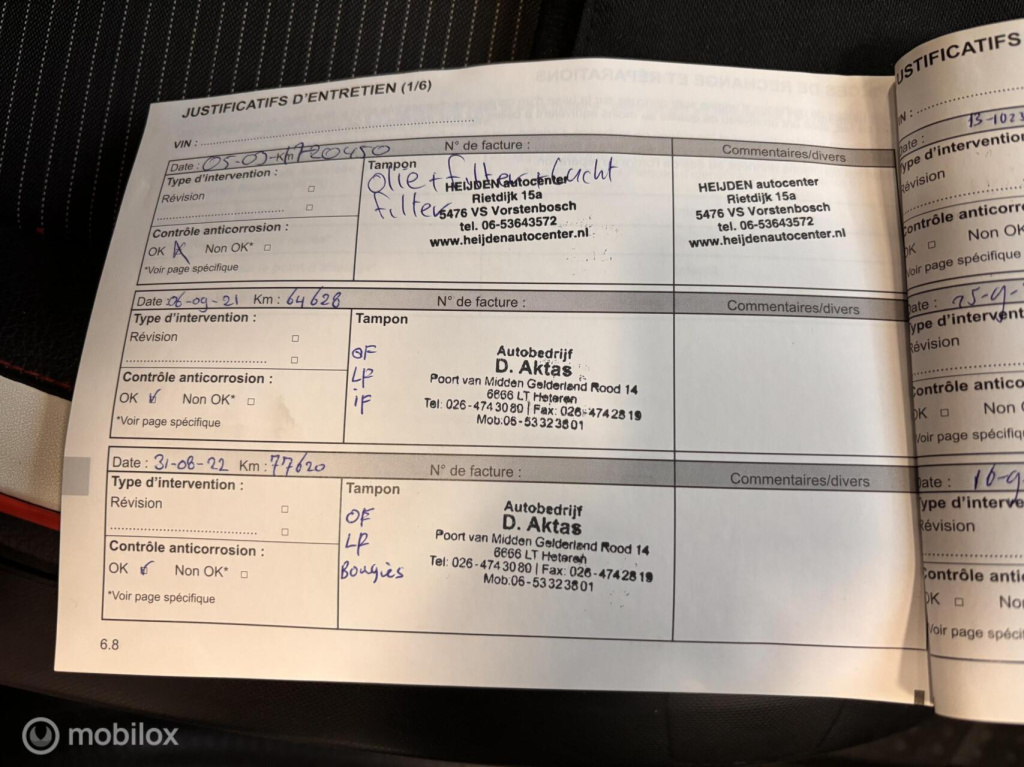 JUSTIFICATIFS D'ENTRETIEN (1/6)
VIN :
Date : Km N° de facture : Commentaires/divers
Type d'intervention :
Révision
Contrôle anticorrosion :
OK Non OK*
*Voir page spécifique
Tampon
Olie + filter + lucht
filter
HEIJDEN autocenter
Rietdijk 15a
5476 VS Vorstenbosch
tel. 06-53643572
www.heijdenautocenter.nl
HEIJDEN autocenter
Rietdijk 15a
5476 VS Vorstenbosch
tel. 06-53643572
www.heijdenautocenter.nl
Date : 06-09-21 Km : 64628 N° de facture : Commentaires/divers
Type d'intervention :
Révision
Contrôle anticorrosion :
OK Non OK*
*Voir page spécifique
Tampon
OF
LF
iF
Autobedrijf
D. Aktas
Poort van Midden Gelderland Rood 14
6666 LT Heteren
Tel: 026-4743080 | Fax: 026-4742819
Mob:06-53323801
Date : 31-08-22 Km : 77620 N° de facture : Commentaires/divers
Type d'intervention :
Révision
Contrôle anticorrosion :
OK Non OK*
*Voir page spécifique
Tampon
OF
LF
Bougiès
Autobedrijf
D. Aktas
Poort van Midden Gelderland Rood 14
6666 LT Heteren
Tel: 026-4743080 | Fax: 026-4742819
Mob:06-53323801
6.8
JUSTIFICATIFS
Révision
Non OK
Révision
Non
Révision
mobilox